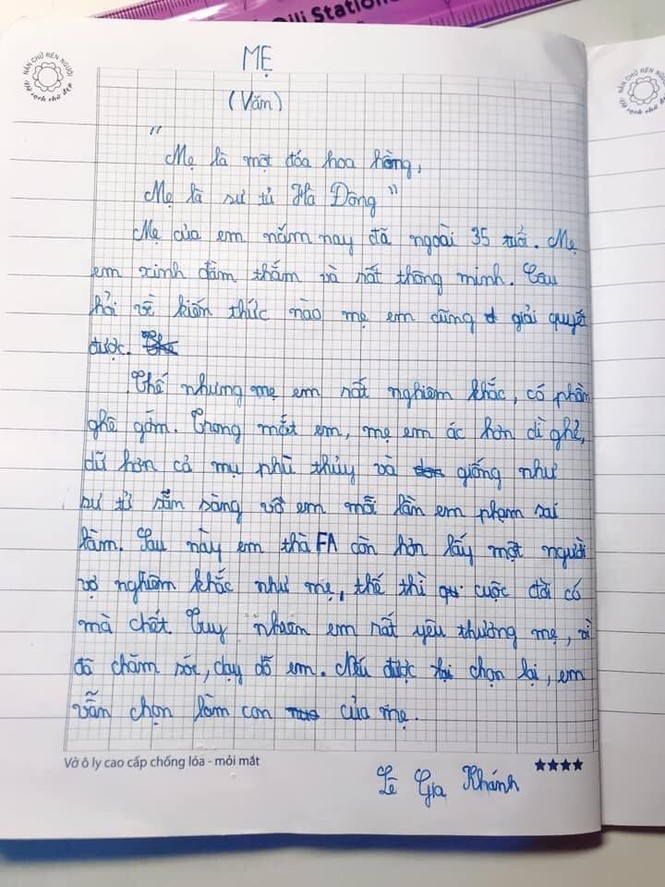 Dili Station
NẮN CHỮ RÈN NGƯỜI
Giữ sạch chữ đẹp
NẮN CHỮ RÈN NGƯỜI
MẸ
(Văn)
"
Mẹ là một đóa hoa hồng,
Mẹ là sư tử Hà Đông"
Mẹ của em năm nay đã ngoài 35 tuổi. Mẹ
em xinh đằm thắm và rất thông minh. Câu
hỏi về kiến thức nào mẹ em cũng giải quyết
được.
Thế nhưng mẹ em rất nghiêm khắc, có phần
ghê gớm. Trong mắt em, mẹ em ác hơn dì ghẻ,
dữ hơn cả mụ phù thủy và giống như
sư tử sẵn sàng vồ em mỗi lần em phạm sai
lầm. Sau này em thà FA còn hơn lấy một người
vợ nghiêm khắc như mẹ, thế thì cuộc đời có
mà chết. Tuy nhiên em rất yêu thương mẹ, vì
đã chăm sóc, dạy dỗ em. Nếu được chọn lại, em
vẫn chọn làm con của mẹ.
Vở ô ly cao cấp chống lóa - mỏi mắt
Lê Gia Khánh